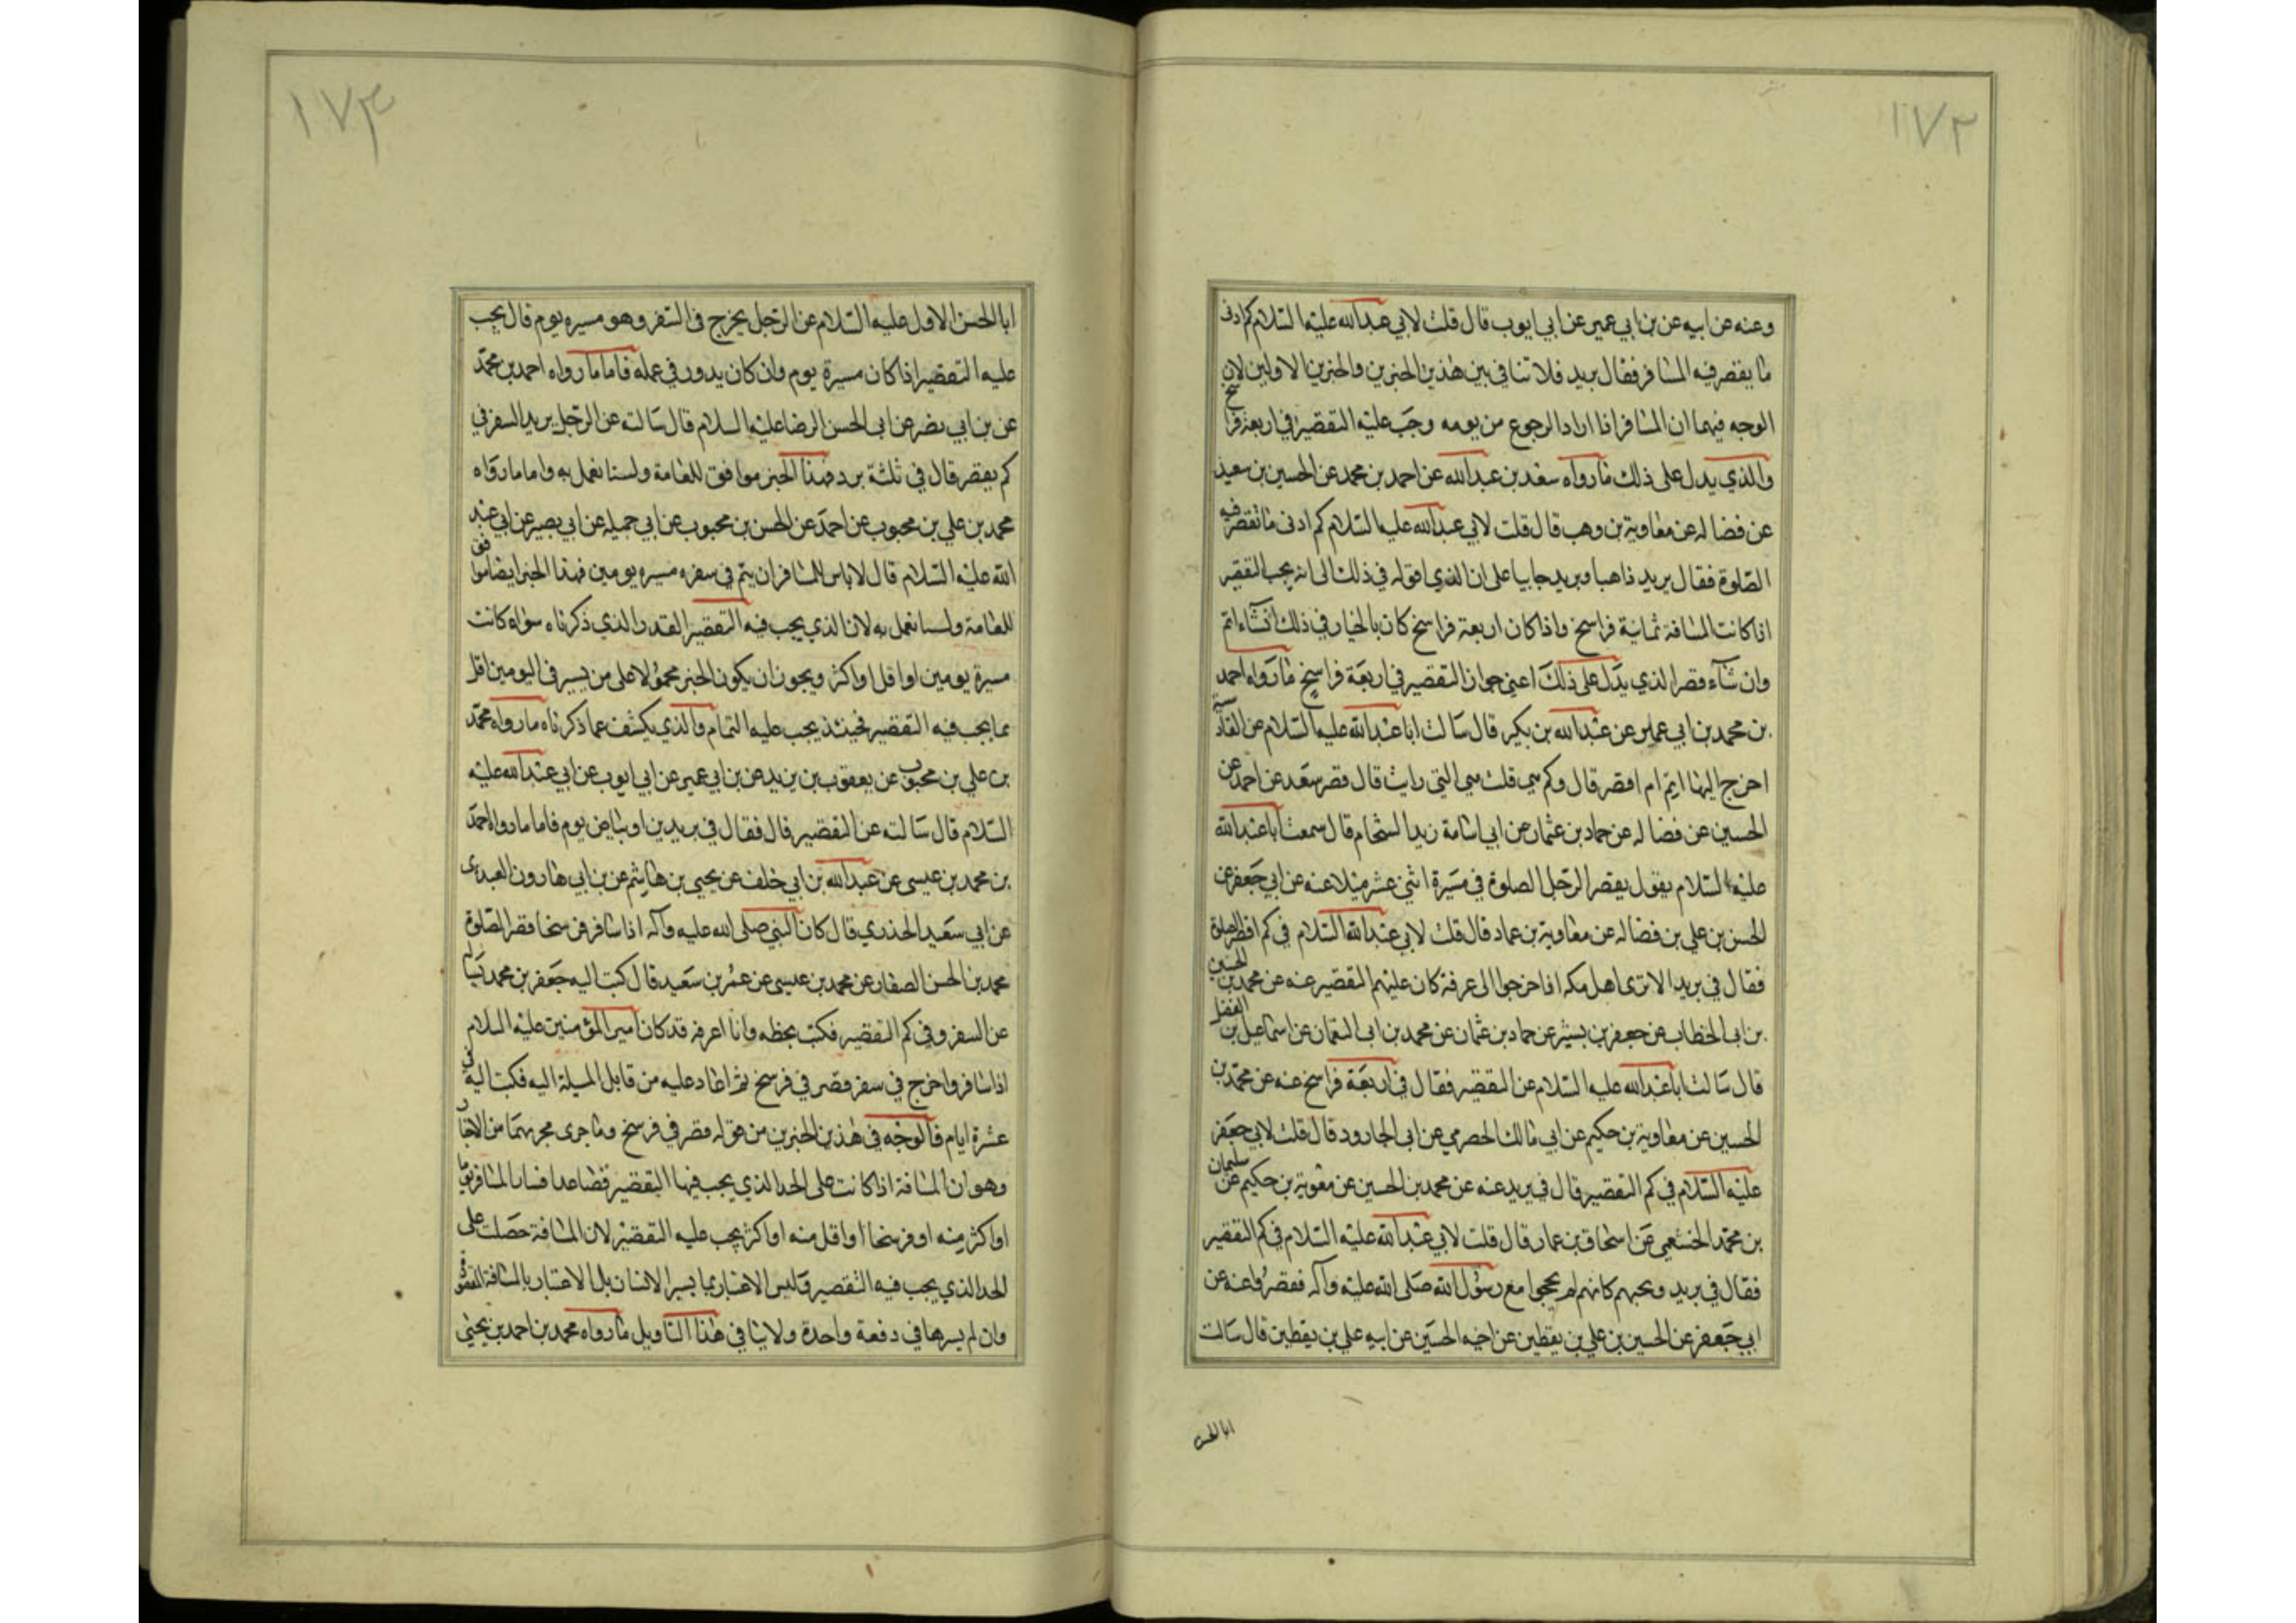 ١٧٢
وعنه عن ابيه عن بن ابي عمير عن ابي ايوب قال قلت لابي عبدالله عليه السلام كم ادنى
ما يقصر فيه المسافر فقال بريد فلا تنافي بين هذين الخبرين والخبرين الاولين لان
الوجه فيهما ان المسافر اذا اراد الرجوع من يومه وجب عليه التقصير في اربعة فراسخ
والذي يدل على ذلك ما رواه سعد بن عبدالله عن احمد بن محمد عن الحسين بن سعيد
عن فضاله عن معاوية بن وهب قال قلت لابي عبدالله عليه السلام كم ادنى ما تقصر فيه
الصلوة فقال بريد ذاهبا وبريد جابيا على ان الذي اقوله في ذلك الى انه يجب التقصير
اذا كانت المسافة ثمانية فراسخ واذا كان اربعة فراسخ كان بالخيار في ذلك ان شاء اتم
وان شاء قصر الذي يدل على ذلك اعنى جواز التقصير في اربعة فراسخ ما رواه احمد
بن محمد بن ابي عمير عن عبدالله بن بكير قال سالت ابا عبدالله عليه السلام عن القادسية
اخرج اليها ايتم ام اقصر قال وكم هي قلت هي التي رايت قال قصر سعد عن احمد عن
الحسين عن فضاله عن حماد بن عثمان عن ابي اسامة زيد الشحام قال سمعت ابا عبدالله
عليه السلام يقول يقصر الرجل الصلوة في مسيرة اثنى عشر ميلا عنه عن ابي جعفر عن
الحسن بن علي بن فضاله عن معاوية بن عماد قال قلت لابي عبدالله السلام في كم اقصر الصلوة
فقال في بريد الا ترى اهل مكه اذا خرجوا الى عرفة كان عليهم التقصير عنه عن محمد بن الحسين
بن ابى الخطاب عن جعفر بن بشير عن حماد بن عثمان عن محمد بن ابى النعمان عن اسماعيل بن الفضل
قال سالت ابا عبدالله عليه السلام عن التقصير فقال في اربعة فراسخ عنه عن محمد بن
الحسين عن معاوية بن حكيم عن ابي مالك الحضرمي عن ابى الجارود قال قلت لابي جعفر
عليه السلام في كم التقصير قال في بريد عنه عن محمد بن الحسين عن معوية بن حكيم عن سليمان
بن محمد الخثعمي عن اسحاق بن عمار قال قلت لابي عبدالله عليه السلام في كم التقصير
فقال في بريد ويحهم كانهم لم يحجوا مع رسول الله صلى الله عليه وآله فقصروا عنه عن
ابي جعفر عن الحسين بن علي بن يقطين عن اخيه الحسين عن ابيه علي بن يقطين قال سالت
ابا الحسن
١٧٣
ابا الحسن الاول عليه السلام عن الرجل يخرج فى السفر وهو مسيره يوم قال يجب
عليه التقصير اذا كان مسيرة يوم وان كان يدور في عمله فاما ما رواه احمد بن محمد
عن بن ابي نصر عن ابى الحسن الرضا عليه السلام قال سالته عن الرجل يريد السفر في
كم يقصر قال في ثلثة برد فهذا الخبر موافق للعامة ولسنا نعمل به واما ما رواه
محمد بن علي بن محبوب عن احمد عن الحسن بن محبوب عن ابي جميله عن ابي بصير عن ابي عبد
الله عليه السلام قال لا باس للمسافر ان يتم في سفره مسيره يومين فهذا الخبر ايضا موافق
للعامة ولسنا نعمل به لان الذي يجب فيه التقصير القدر الذي ذكرناه سواء كانت
مسيرة يومين او اقل او اكثر ويجوز ان يكون الخبر محمولا على من يسير في اليومين اقل
مما يجب فيه التقصير فحينئذ يجب عليه التمام والذي يكشف عما ذكرناه ما رواه محمد
بن علي بن محبوب عن يعقوب بن يزيد عن بن ابي عمير عن ابي ايوب عن ابي عبدالله عليه
السلام قال سالته عن التقصير قال فقال في بريدين او بياض يوم فاما ما رواه احمد
بن محمد بن عيسى عن عبدالله بن ابي خلف عن يحيى بن هاشم عن بن ابي هارون العبدى
عن ابي سعيد الخذري قال كان النبي صلى الله عليه وآله اذا سافر فرسخا قصر الصلوة
محمد بن الحسن الصفار عن محمد بن عيسى عن عمر بن سعيد قال كتب اليه جعفر بن محمد يساله
عن السفر وفي كم التقصير فكتب بخطه وانا اعرفه قد كان امير المؤمنين عليه السلام
اذا سافر واخرج في سفر قصر في فرسخ ثم اعاد عليه من قابل المسيلة اليه فكتب اليه في
عشرة ايام فالوجه في هذين الخبرين من قوله قصر في فرسخ وما جرى مجريهما من الاخبار
وهو ان المسافة اذا كانت على الحد الذي يجب فيها التقصير فصاعدا فسار المسافر يوما
او اكثر منه او فرسخا او اقل منه او اكثر يجب عليه التقصير لان المسافة حصلت على
الحد الذي يجب فيه التقصير وليس الاعتبار بما يسير الانسان بل الاعتبار بالمسافة المقصودة
وان لم يسرها في دفعة واحدة ولا ينافي هذا التاويل ما رواه محمد بن احمد بن يحيى